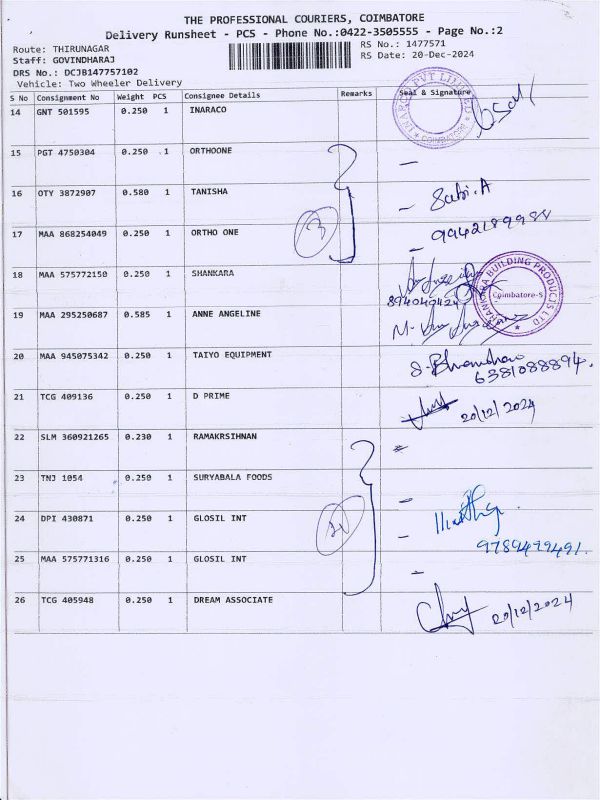 THE PROFESSIONAL COURIERS, COIMBATORE
Delivery Runsheet - PCS - Phone No.:0422-3505555 - Page No.:2
Route: THIRUNAGAR
RS No.: 1477571
Staff: GOVINDHARAJ
RS Date: 20-Dec-2024
DRS No.: DCJB147757102
Vehicle: Two Wheeler Delivery
S No Consignment No Weight PCS Consignee Details Remarks Seal & Signature
14 GNT 501595 0.250 1 INARACO
COIMBATORE
15 PGT 4750304 0.250 1 ORTHOONE
16 OTY 3872907 0.580 1 TANISHA
Sabi.A
3
17 MAA 868254049 0.250 1 ORTHO ONE
9942189988
18 MAA 575772150 0.250 1 SHANKARA
SHANKARA BUILDING PRODUCTS LTD
Coimbatore-5
19 MAA 295250687 0.585 1 ANNE ANGELINE
20 MAA 945075342 0.250 1 TAIYO EQUIPMENT
6381088894.
21 TCG 409136 0.250 1 D PRIME
20/12/2024
22 SLM 360921265 0.230 1 RAMAKRSIHNAN
23 TNJ 1054 0.250 1 SURYABALA FOODS
24 DPI 430871 0.250 1 GLOSIL INT
9789499491.
25 MAA 575771316 0.250 1 GLOSIL INT
26 TCG 405948 0.250 1 DREAM ASSOCIATE
20/12/2024